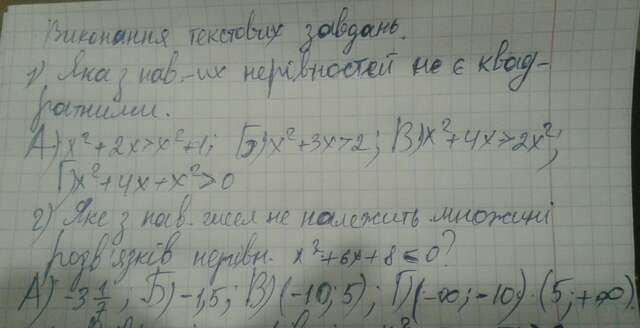 Виконання текстових завдань.
1) Яка з нав-их нерівностей не є квад-
ратними.
А) x²+2x>x²+1; Б) x²+3x>2; В) x²+4x>2x²;
Г) x²+4x+x²>0
2) Яке з нав. чисел не належить множині
розв'язків нерівн. x²+6x+8≤0?
А) -3 1/7; Б) -1,5; В) (-10; 5); Г) (-∞; -10)·(5; +∞)